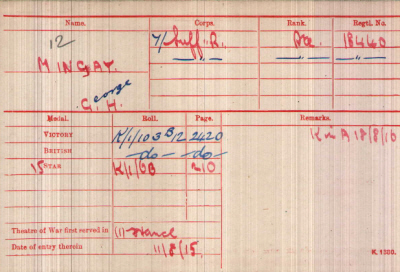 Name. Corps. Rank. Regtl. No.
12 7/Suff. R. Pte 18440
MINGAY. — " — — " — — " —
George
G. H.
Medal. Roll. Page. Remarks.
VICTORY K/1/103 B12 2420 K in A 18/8/16
BRITISH —do— —do—
15 STAR K/1/6B 210
Theatre of War first served in (1) France
Date of entry therein 11/8/15.
K. 1380.